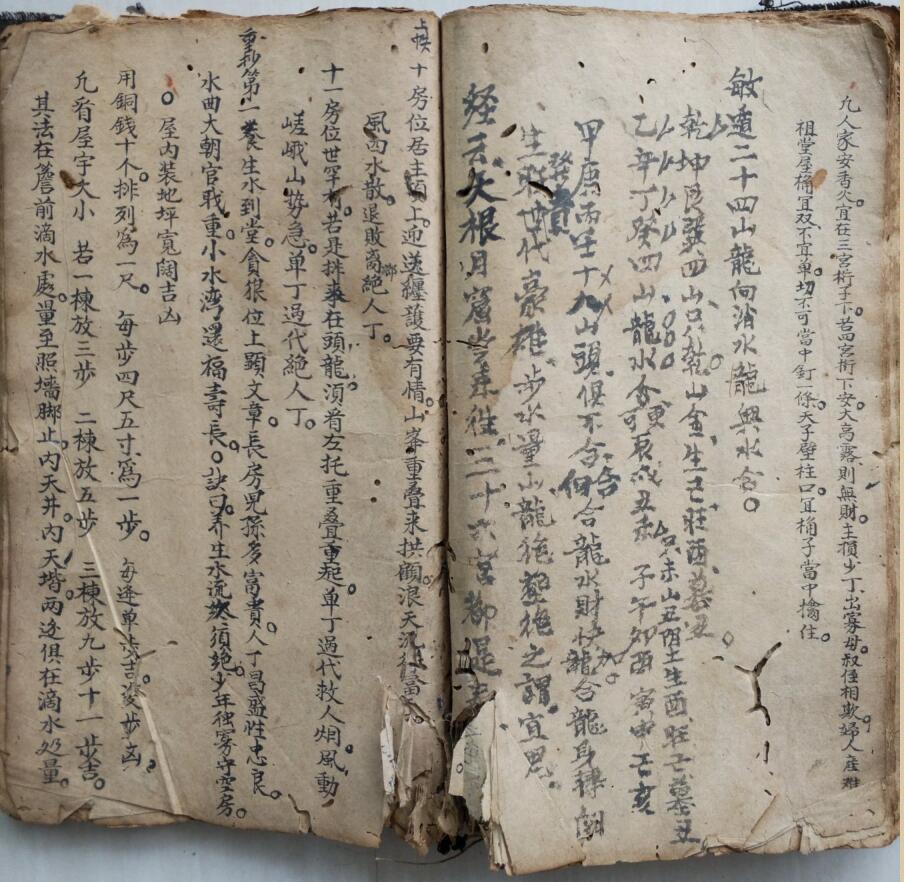 九人家安香火宜在三宮桁子下若四宮桁下安大高露則無財主損少丁出寡母叔侄相欺婦人產難
祖堂屋桶宜双不宜单切不可當中釘一條天子壁柱口宜桶子當中擒住
二十四山龍向消水龍與水合
乾坤艮巽四山只乾山金生巳旺酉墓丑
只未山丑阴土生酉旺子墓丑
乙辛丁癸四山龍水合更辰戌丑未子午卯酉寅申巳亥
甲庚丙壬十九山頭俱不合合龍水財龍合龍身轉
發貴
生旺世代豪雄步水量山龍施之謂宜思
經云天根月窟常来往三十六宮都是春
上帙十房位居主頂上迎送纏護要有情山峯重疊来拱顧浪天
風西水散退敗离鄉絕人丁
十一房位世罕有若是排来在頭龍須看左托重疊重起单丁過代救人烟風動
嵯峨山势急单丁過代絕人丁
重抄第一养生水到堂貪狼位上顯文章長房児孫多富貴人丁昌盛性忠良
水曲大朝官戢重小水湾還福壽長訣曰养生水流破須絕少年独寡守空房
屋内装地坪寬闊吉凶
用銅錢十个排列為一尺每步四尺五寸為一步每逢单步吉双步凶
凡看屋宇大小若一棟放三步二棟放五步三棟放九步十一步吉
其法在簷前滴水處量至照墙脚止内天井内天堦两边俱在滴水処量